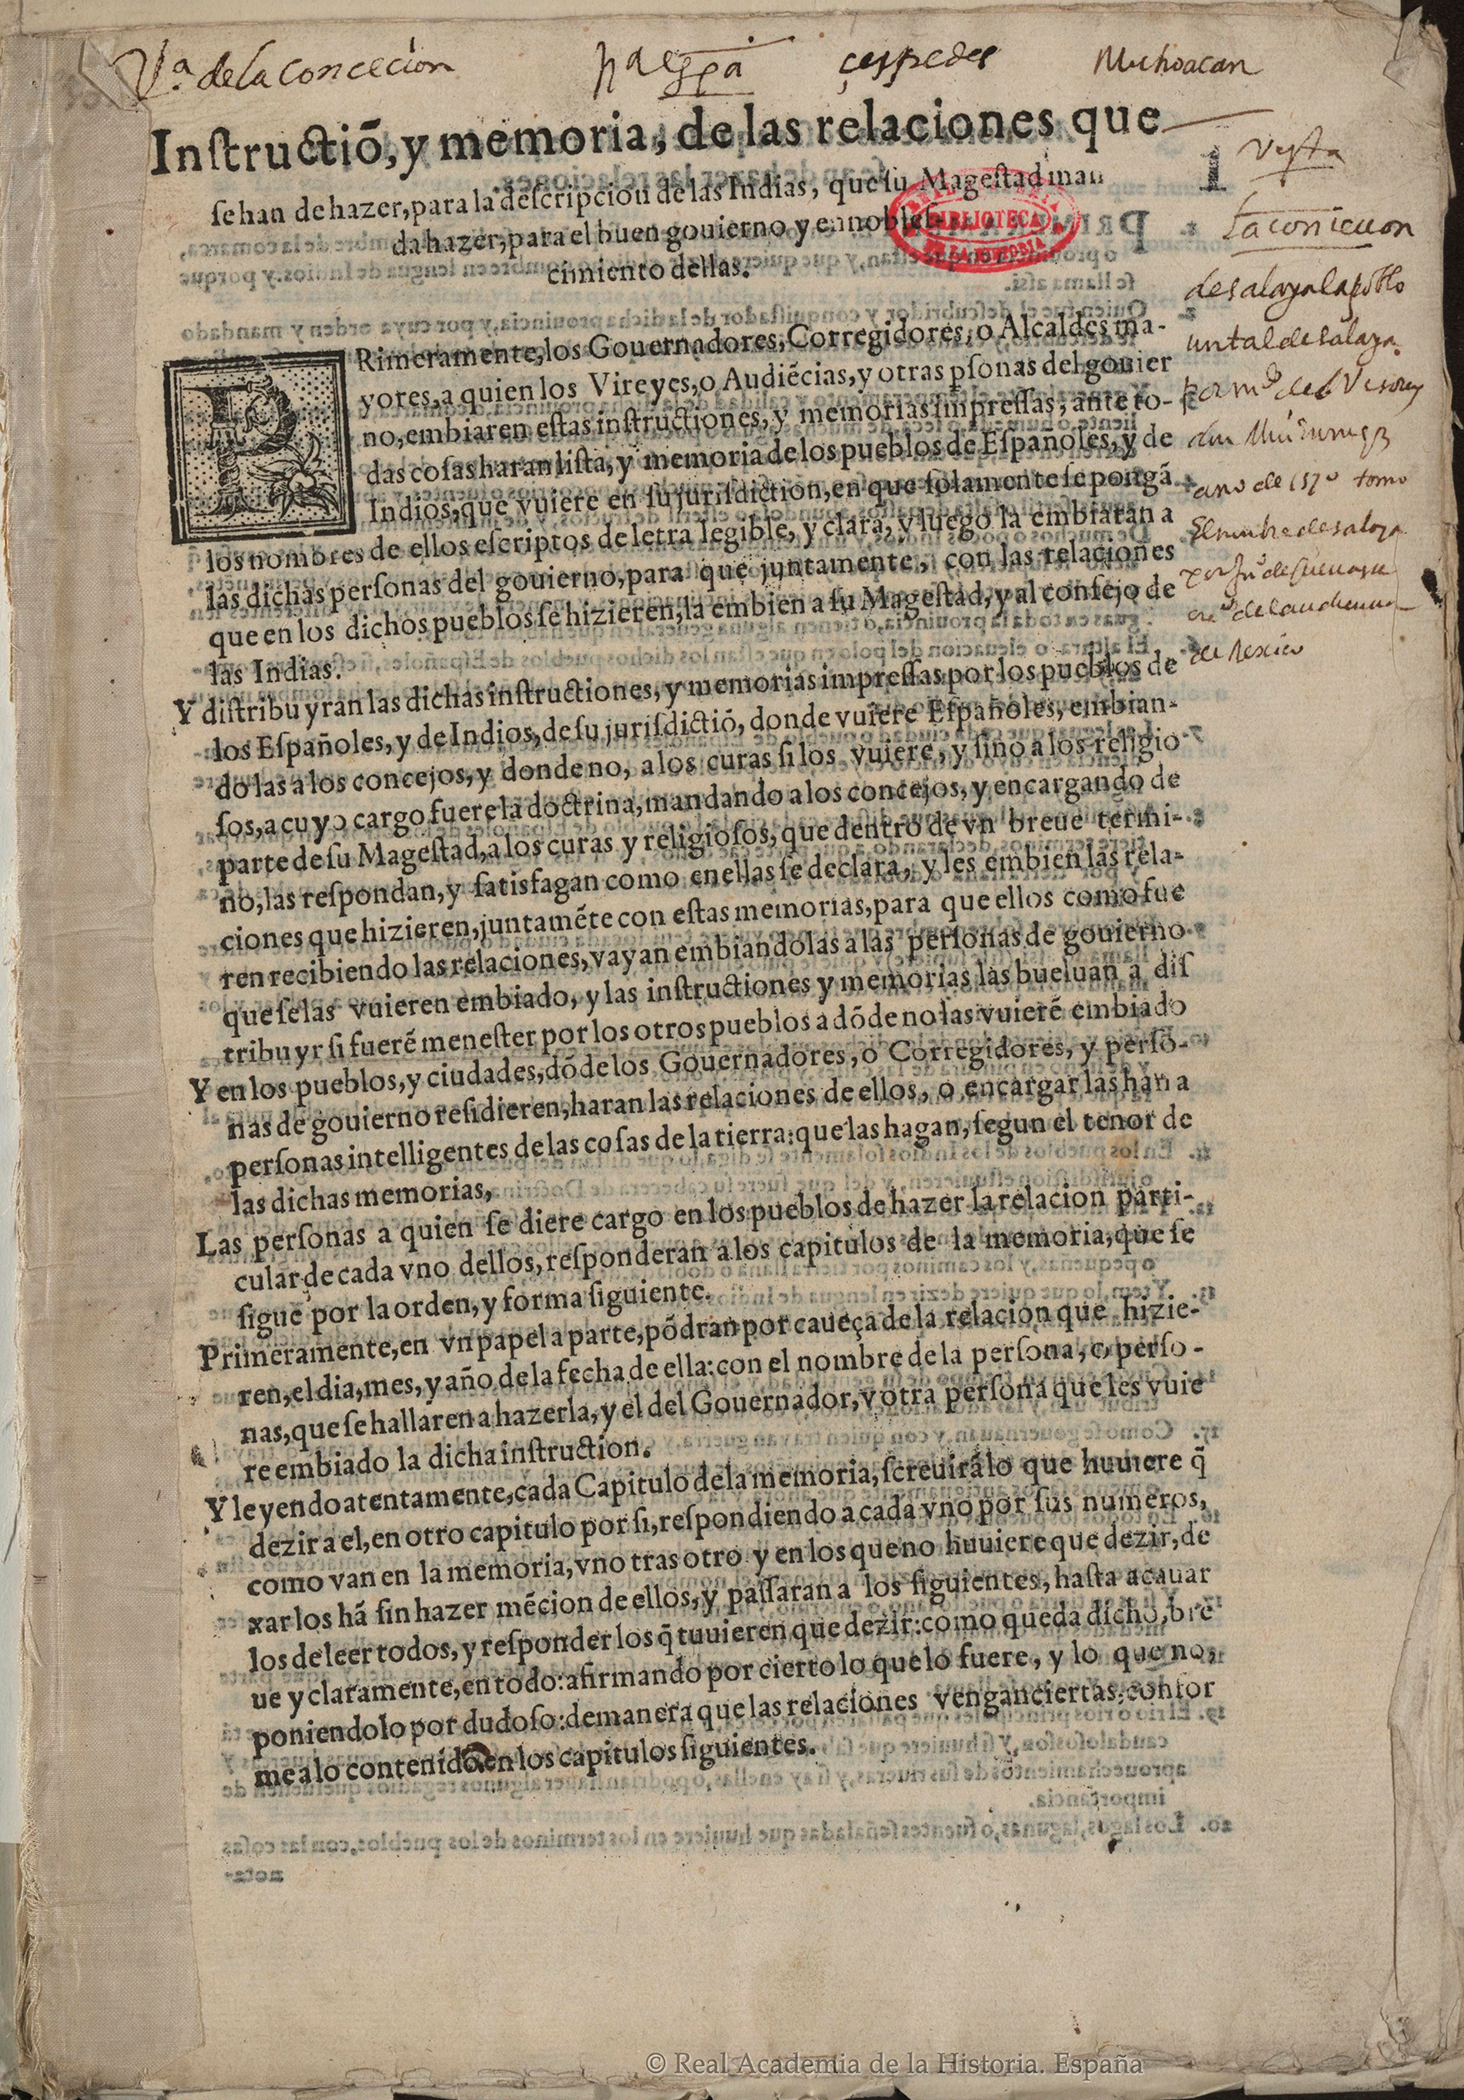 Vª. de la concecion nª espª çespedes Michoacan
Inſtructiõ, y memoria, de las relaciones que
ſe han de hazer, para la deſcripcion de las Indias, que ſu Mageſtad man
da hazer, para el buen gouierno y ennobleſ-
cimiento dellas.
1
vista
la concicion
de salaya la poblo
un tal de salaya
por mdº del Visorey
don Min enrriqz
año de 1570 tomo
El nombre de salaya
por Juº de Cueva su
de la audiencia
de Mexico
PRimeramente, los Gouernadores, Corregidores, o Alcaldes ma-
yores, a quien los Vireyes, o Audiẽcias, y otras pſonas del gouier
no, embiaren eſtas inſtructiones, y memorias impreſſas, ante to-
das coſas haran liſta, y memoria de los pueblos de Eſpañoles, y de
Indios, que vuiere en ſu juriſdiction, en que ſolamente ſe pongã
los nombres de ellos eſcriptos de letra legible, y clara, y luego la embiaran a
las dichas perſonas del gouierno, para que juntamente, con las relaciones
que en los dichos pueblos ſe hizieren, la embien a ſu Mageſtad, y al conſejo de
las Indias.
Y diſtribuyran las dichas inſtructiones, y memorias impreſſas por los pueblos de
los Eſpañoles, y de Indios, de ſu juriſdictiõ, donde vuiere Eſpañoles, embian-
do las a los concejos, y donde no, a los curas ſi los vuiere, y ſino a los religio
ſos, a cuyo cargo fuere la doctrina, mandando a los concejos, y encargando de
parte de ſu Mageſtad, a los curas y religioſos, que dentro de vn breue termi-
no, las reſpondan, y ſatisfagan como en ellas ſe declara, y les embien las rela-
ciones que hizieren, juntamẽte con eſtas memorias, para que ellos como fue
ren recibiendo las relaciones, vayan embiandolas a las perſonas de gouierno
que ſe las vuieren embiado, y las inſtructiones y memorias las bueluan a diſ
tribuyr ſi fuerẽ meneſter por los otros pueblos a dõde no las vuierẽ embiado
Y en los pueblos, y ciudades, dõde los Gouernadores, o Corregidores, y perſo-
nas de gouierno reſidieren, haran las relaciones de ellos, o encargar las han a
perſonas intelligentes de las coſas de la tierra: que las hagan, ſegun el tenor de
las dichas memorias,
Las perſonas a quien ſe diere cargo en los pueblos de hazer la relacion parti-
cular de cada vno dellos, reſponderan a los capitulos de la memoria, que ſe
ſigue por la orden, y forma ſiguiente.
Primeramente, en vn papel a parte, põdran por caueça de la relacion que hizie-
ren, el dia, mes, y año de la fecha de ella: con el nombre de la perſona, o perſo-
nas, que ſe hallaren a hazerla, y el del Gouernador, y otra perſona que les vuie
re embiado la dicha inſtruction.
Y leyendo atentamente, cada Capitulo de la memoria, ſcreuirá lo que huuiere q̃
dezir a el, en otro capitulo por ſi, reſpondiendo a cada vno por ſus numeros,
como van en la memoria, vno tras otro y en los que no huuiere que dezir, de
xar los hã ſin hazer mẽcion de ellos, y paſſaran a los ſiguientes, haſta acauar
los de leer todos, y reſponder los q̃ tuuieren que dezir: como queda dicho, bre
ue y claramente, en todo: afirmando por cierto lo que lo fuere, y lo que no,
poniendolo por dudoſo: de manera que las relaciones vengan ciertas, confor
me a lo contenido en los capitulos ſiguientes.
© Real Academia de la Historia. España